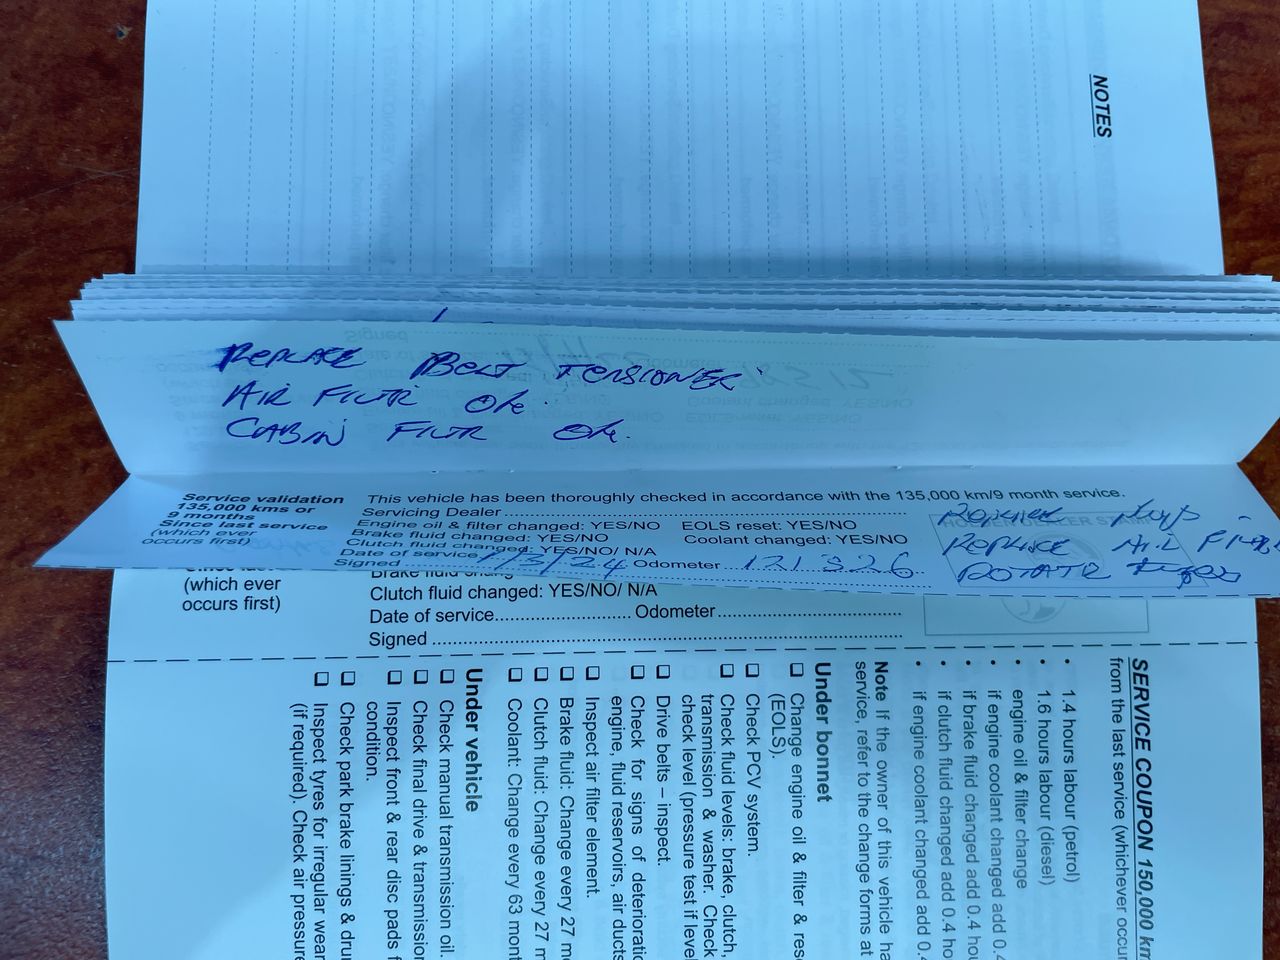 NOTES
REPLACE BELT TENSIONER
AIR FILTR OK.
CABIN FILTR OK.
Service validation
135,000 kms or
9 months
Since last service
(which ever
occurs first)
This vehicle has been thoroughly checked in accordance with the 135,000 km/9 month service.
Servicing Dealer
Engine oil & filter changed: YES/NO EOLS reset: YES/NO
Brake fluid changed: YES/NO Coolant changed: YES/NO
Clutch fluid changed: YES/NO/ N/A
Date of service 1/3/24 Odometer 121326
Signed
HOLDEN DEALER STAMP
REPLACE AIR
ROTATE
(which ever
occurs first)
Clutch fluid changed: YES/NO/ N/A
Date of service Odometer
Signed
SERVICE COUPON 150,000 km
from the last service (whichever occur
• 1.4 hours labour (petrol)
• 1.6 hours labour (diesel)
• engine oil & filter change
• if engine coolant changed add 0.4
• if brake fluid changed add 0.4 hou
• if clutch fluid changed add 0.4 ho
• if engine coolant changed add 0.4
Note If the owner of this vehicle ha
service, refer to the change forms at
Under bonnet
❑ Change engine oil & filter & res
(EOLS).
❑ Check PCV system.
❑ Check fluid levels: brake, clutch,
transmission & washer. Check
check level (pressure test if level
❑ Drive belts – inspect.
❑ Check for signs of deterioratio
engine, fluid reservoirs, air ducts
❑ Inspect air filter element.
❑ Brake fluid: Change every 27 mo
❑ Clutch fluid: Change every 27 m
❑ Coolant: Change every 63 mont
Under vehicle
❑ Check manual transmission oil.
❑ Check final drive & transmission
❑ Inspect front & rear disc pads f
condition.
❑ Check park brake linings & drum
❑ Inspect tyres for irregular wear
(if required). Check air pressure